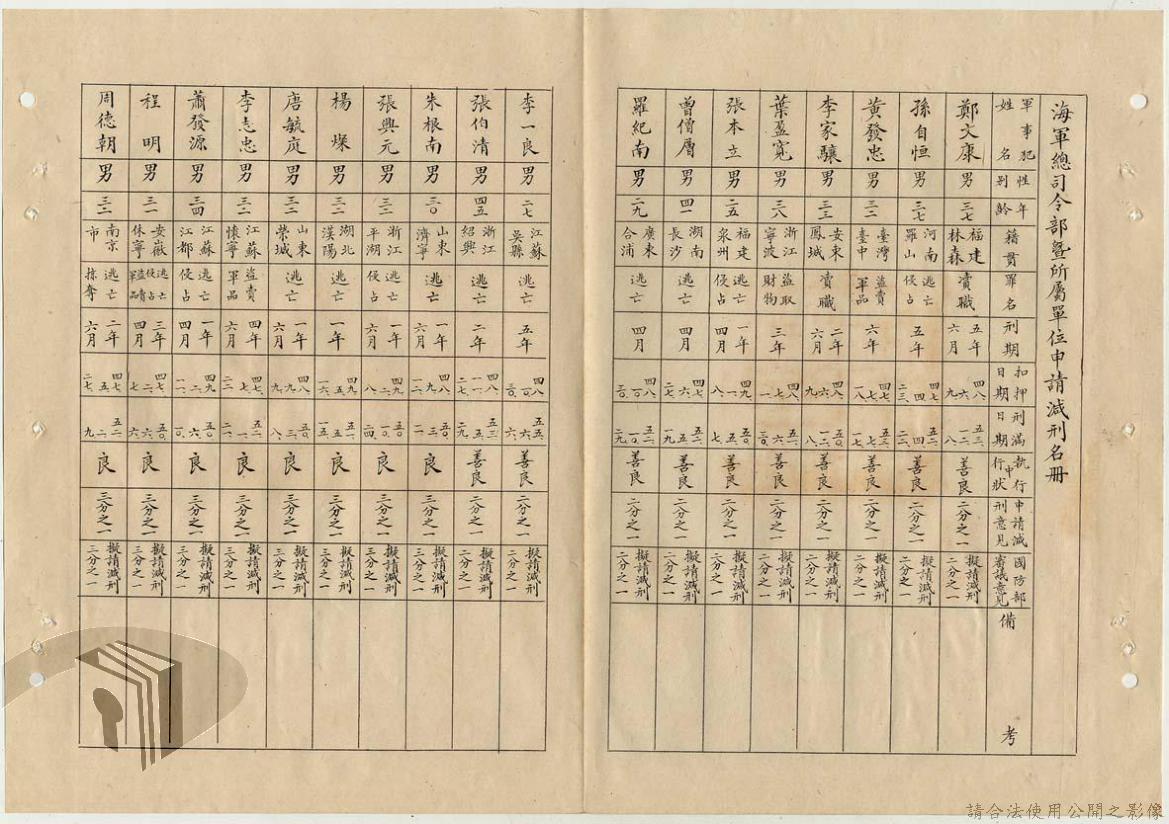 海軍總司令部暨所屬單位申請減刑名冊
軍事犯姓名 性別 年齡 籍貫 罪名 刑期 扣押日期 刑滿日期 執行中行狀 申請減刑意見 國防部審議意見 備考
鄭文康 男 三七 福建林森 瀆職 五年六月 四八、六、九、 五三、一二、八、 善良 二分之一 擬請減刑二分之一
孫自恒 男 三七 河南羅山 逃亡侵占 五年 四七、四、二三、 五二、四、二二、 善良 二分之一 擬請減刑二分之一
黃發忠 男 三二 臺灣臺中 盜賣軍品 六年 四七、七、一八、 五三、七、一七、 善良 二分之一 擬請減刑二分之一
李家驤 男 三三 安東鳳城 瀆職 二年六月 四八、六、九、 五〇、一二、八、 善良 二分之一 擬請減刑二分之一
葉盈寬 男 三八 浙江寧波 盜取財物 三年 四八、七、一、 五一、六、三〇、 善良 二分之一 擬請減刑二分之一
張本立 男 二五 福建泉州 逃亡侵占 一年四月 四九、一、八、 五〇、五、七、 善良 二分之一 擬請減刑二分之一
曾僧層 男 四一 湖南長沙 逃亡 四月 善良 二分之一 擬請減刑二分之一
羅紀南 男 二九 廣東合浦 逃亡 四月 善良 二分之一 擬請減刑二分之一
李一良 男 二七 江蘇吳縣 逃亡 五年 善良 二分之一 擬請減刑二分之一
張伯清 男 四五 浙江紹興 逃亡 二年 善良 二分之一 擬請減刑二分之一
朱根南 男 三〇 山東濟寧 逃亡 一年 良 三分之一 擬請減刑三分之一
張興元 男 三二 浙江平湖 逃亡侵占 一年六月 良 三分之一 擬請減刑三分之一
楊燦 男 三二 湖北漢陽 逃亡 一年 良 三分之一 擬請減刑三分之一
唐毓庭 男 三二 山東榮城 逃亡 一年六月 良 三分之一 擬請減刑三分之一
李志忠 男 三二 江蘇懷寧 盜賣軍品 四年 良 三分之一 擬請減刑三分之一
蕭發源 男 三四 江蘇江都 逃亡侵占 一年四月 良 三分之一 擬請減刑三分之一
程明 男 三一 安徽休寧 逃亡侵占盜賣軍品 三年四月 良 三分之一 擬請減刑三分之一
周德朝 男 三二 南京市 逃亡搶奪 二年六月 良 三分之一 擬請減刑三分之一
請合法使用公開之影像